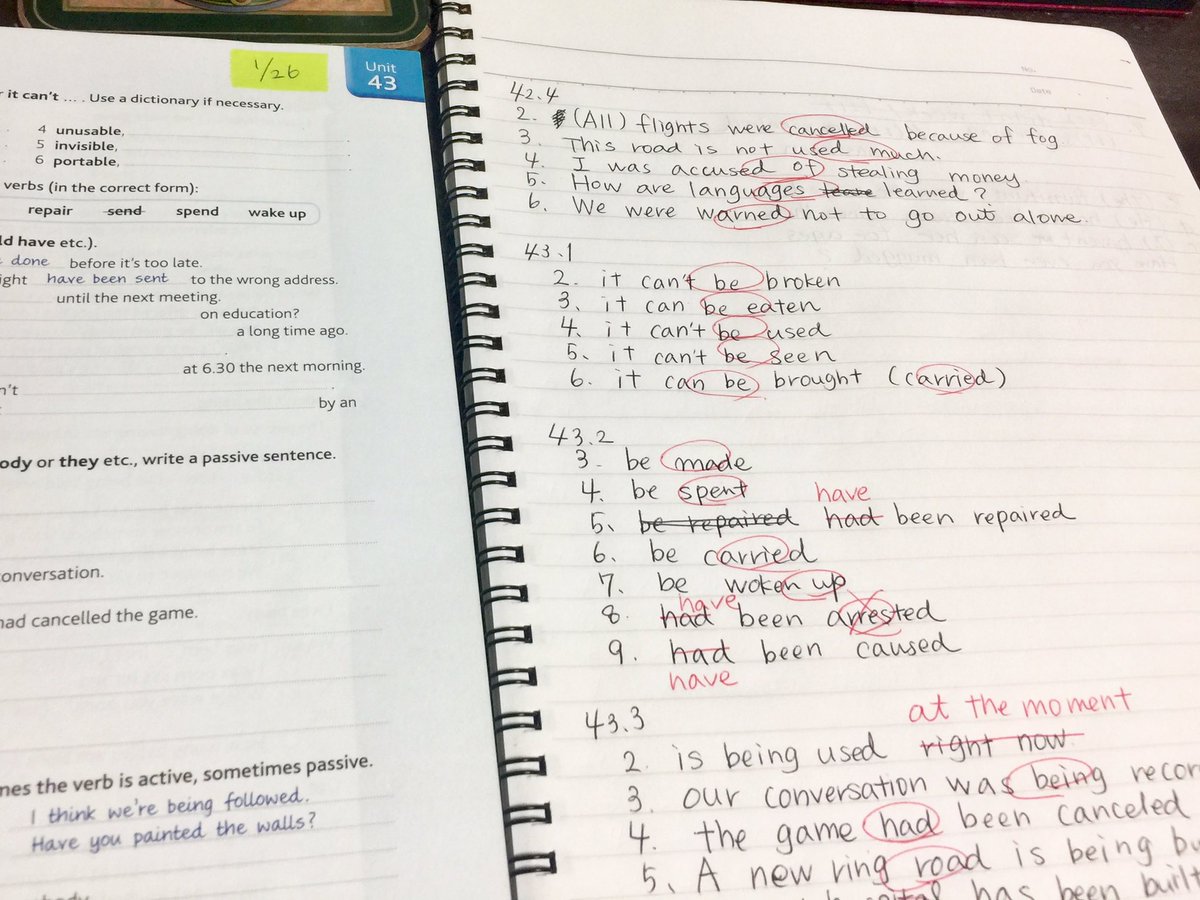 1/26
Unit
43
it can't .... Use a dictionary if necessary.
4 unusable,
5 invisible,
6 portable,
verbs (in the correct form):
repair send spend wake up
have etc.).
done before it's too late.
have been sent to the wrong address.
until the next meeting.
on education?
a long time ago.
at 6.30 the next morning.
by an
or they etc., write a passive sentence.
conversation.
had cancelled the game.
the verb is active, sometimes passive.
I think we're being followed.
Have you painted the walls?
No.
Date
42.4
2. (All) flights were cancelled because of fog
3. This road is not used much.
4. I was accused of stealing money.
5. How are languages learned?
6. We were warned not to go out alone.
43.1
2. it can't be broken
3. it can be eaten
4. it can't be used
5. it can't be seen
6. it can be brought (carried)
43.2
3. be made
4. be spent
have
5. be repaired had been repaired
6. be carried
7. be woken up
have
8. had been arrested
9. had been caused
have
43.3
at the moment
2. is being used right now
3. our conversation was being
4. the game had been canceled
5. A new ring road is being
has been built